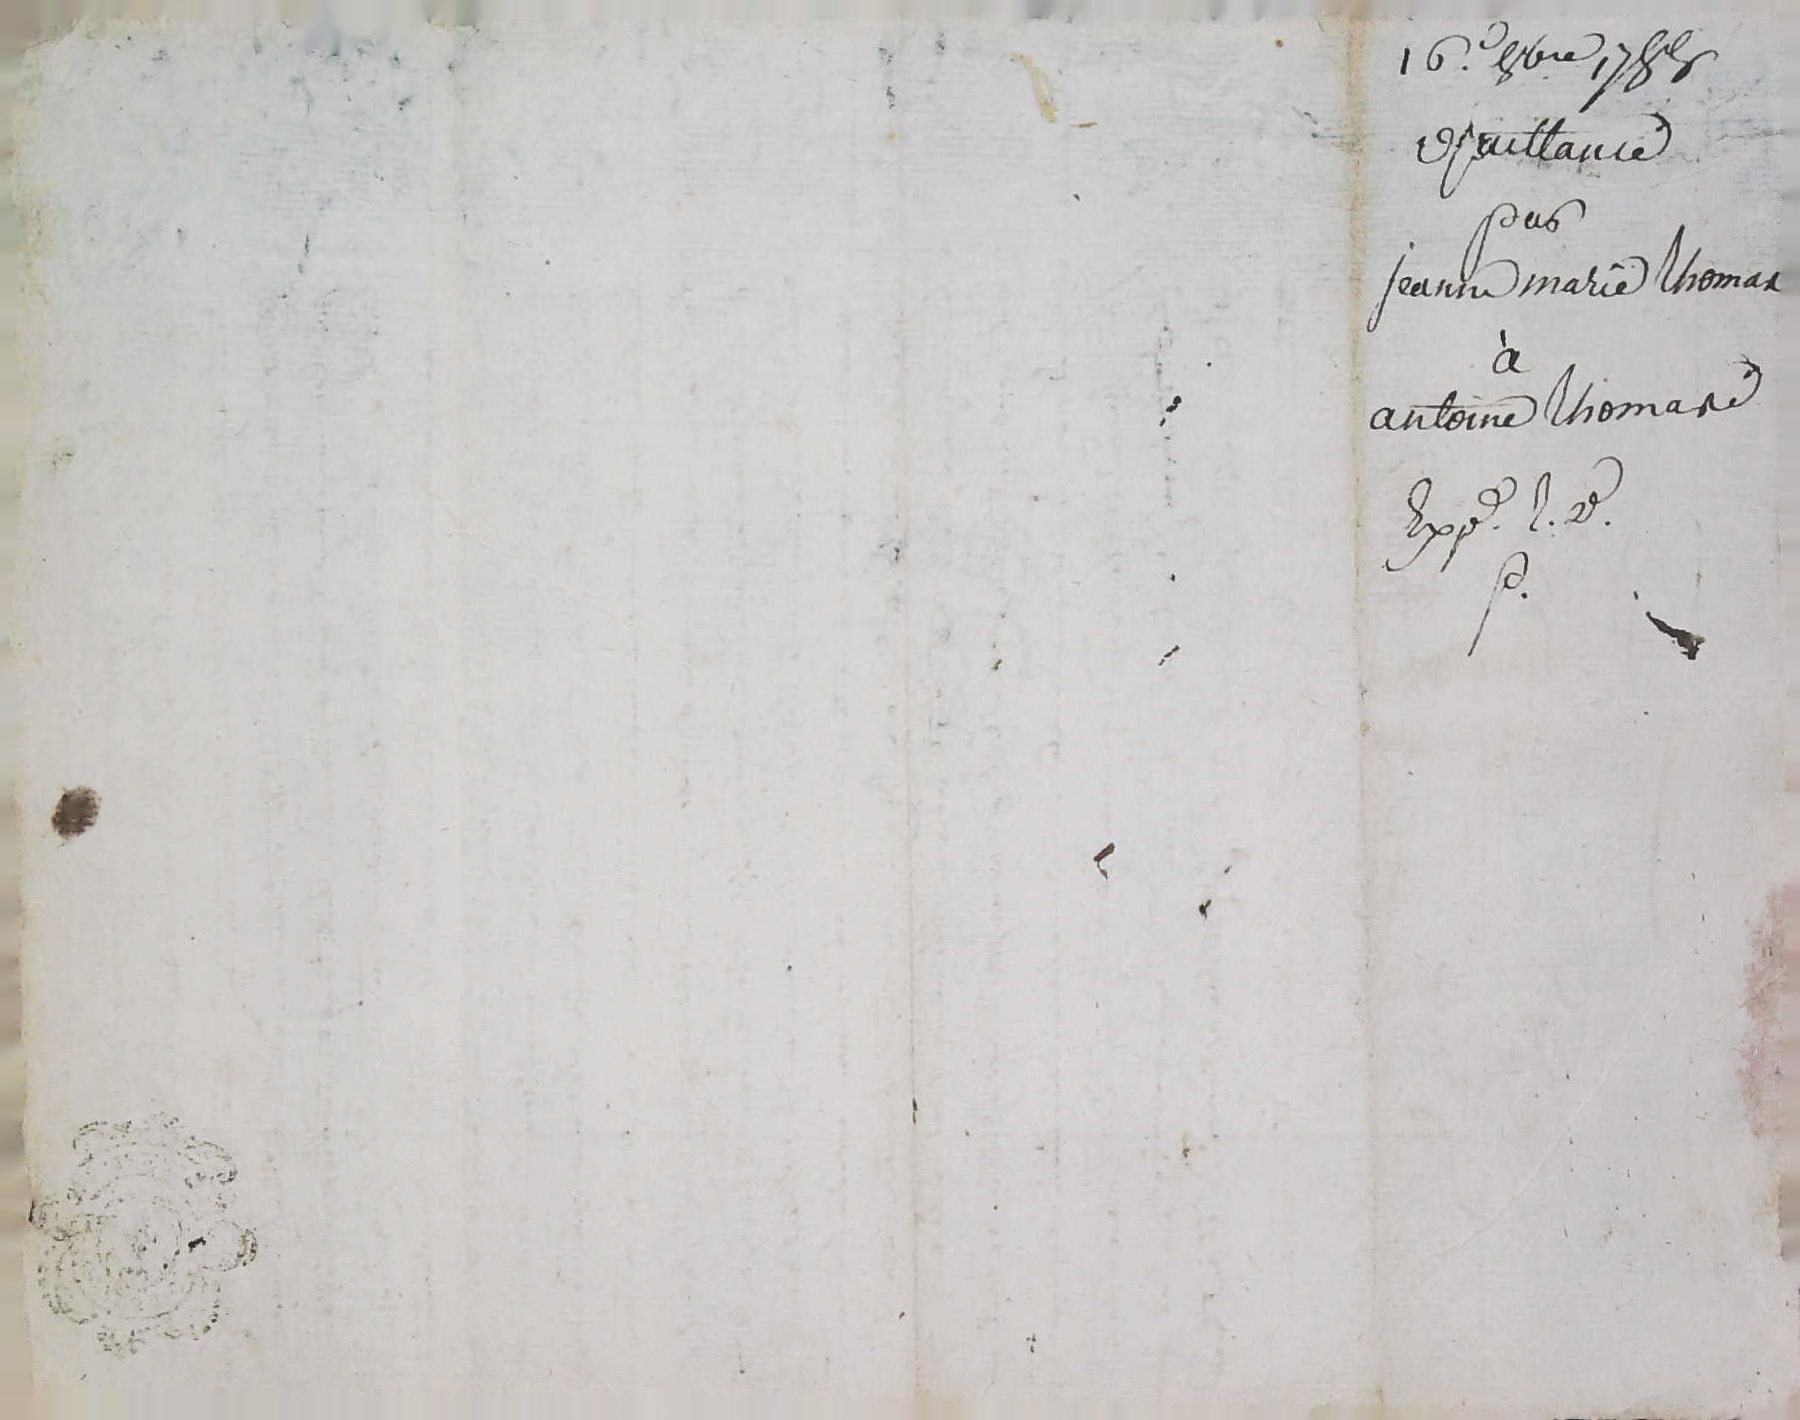 16.e 8bre 1788
Quittance
par
jeanne marie thomas
à
antoine thomasé
Expd. l. d.
p.